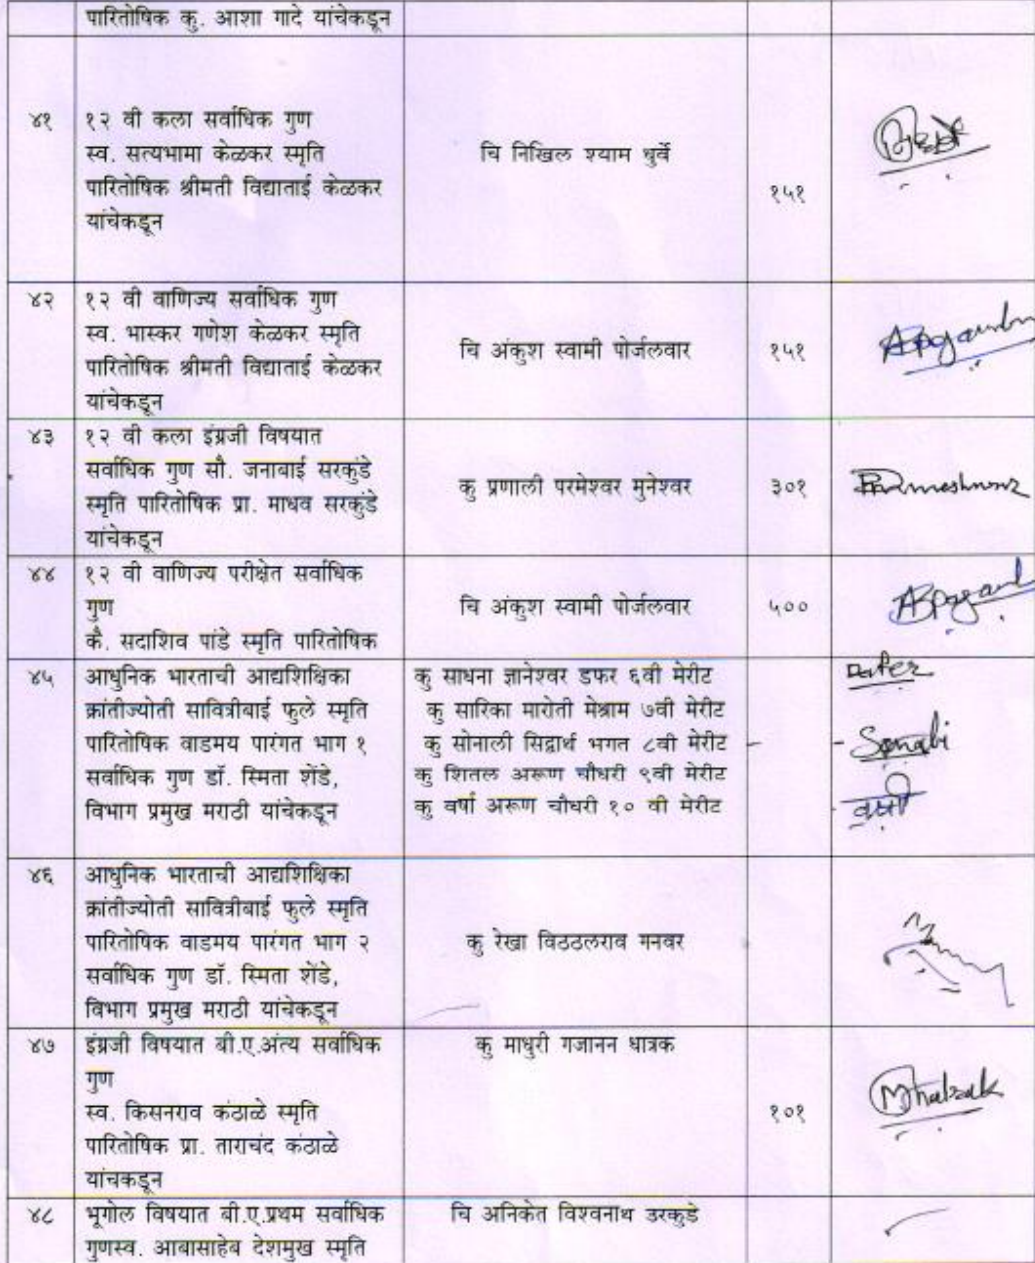 पारितोषिक कु. आशा गादे यांचेकडून
४१ १२ वी कला सर्वाधिक गुण
स्व. सत्यभामा केळकर स्मृति
पारितोषिक श्रीमती विद्याताई केळकर
यांचेकडून
चि निखिल श्याम धुर्वे
१५१
४२ १२ वी वाणिज्य सर्वाधिक गुण
स्व. भास्कर गणेश केळकर स्मृति
पारितोषिक श्रीमती विद्याताई केळकर
यांचेकडून
चि अंकुश स्वामी पोर्जलवार
१५१
४३ १२ वी कला इंग्रजी विषयात
सर्वाधिक गुण सौ. जनाबाई सरकुंडे
स्मृति पारितोषिक प्रा. माधव सरकुंडे
यांचेकडून
कु प्रणाली परमेश्वर मुनेश्वर
३०१
४४ १२ वी वाणिज्य परीक्षेत सर्वाधिक
गुण
कै. सदाशिव पांडे स्मृति पारितोषिक
चि अंकुश स्वामी पोर्जलवार
५००
४५ आधुनिक भारताची आद्यशिक्षिका
क्रांतीज्योती सावित्रीबाई फुले स्मृति
पारितोषिक वाडमय पारंगत भाग १
सर्वाधिक गुण डॉ. स्मिता शेंडे,
विभाग प्रमुख मराठी यांचेकडून
कु साधना ज्ञानेश्वर डफर ६वी मेरीट
कु सारिका मारोती मेश्राम ७वी मेरीट
कु सोनाली सिद्वार्थ भगत ८वी मेरीट
कु शितल अरूण चौधरी ९वी मेरीट
कु वर्षा अरूण चौधरी १० वी मेरीट
Dafer
Sonali
वर्षा
४६ आधुनिक भारताची आद्यशिक्षिका
क्रांतीज्योती सावित्रीबाई फुले स्मृति
पारितोषिक वाडमय पारंगत भाग २
सर्वाधिक गुण डॉ. स्मिता शेंडे,
विभाग प्रमुख मराठी यांचेकडून
कु रेखा विठठलराव गनवर
४७ इंग्रजी विषयात बी.ए.अंत्य सर्वाधिक
गुण
स्व. किसनराव कंठाळे स्मृति
पारितोषिक प्रा. ताराचंद कंठाळे
यांचकडून
कु माधुरी गजानन धात्रक
१०१
४८ भूगोल विषयात बी.ए.प्रथम सर्वाधिक
गुणस्व. आबासाहेब देशमुख स्मृति
चि अनिकेत विश्वनाथ उरकुडे